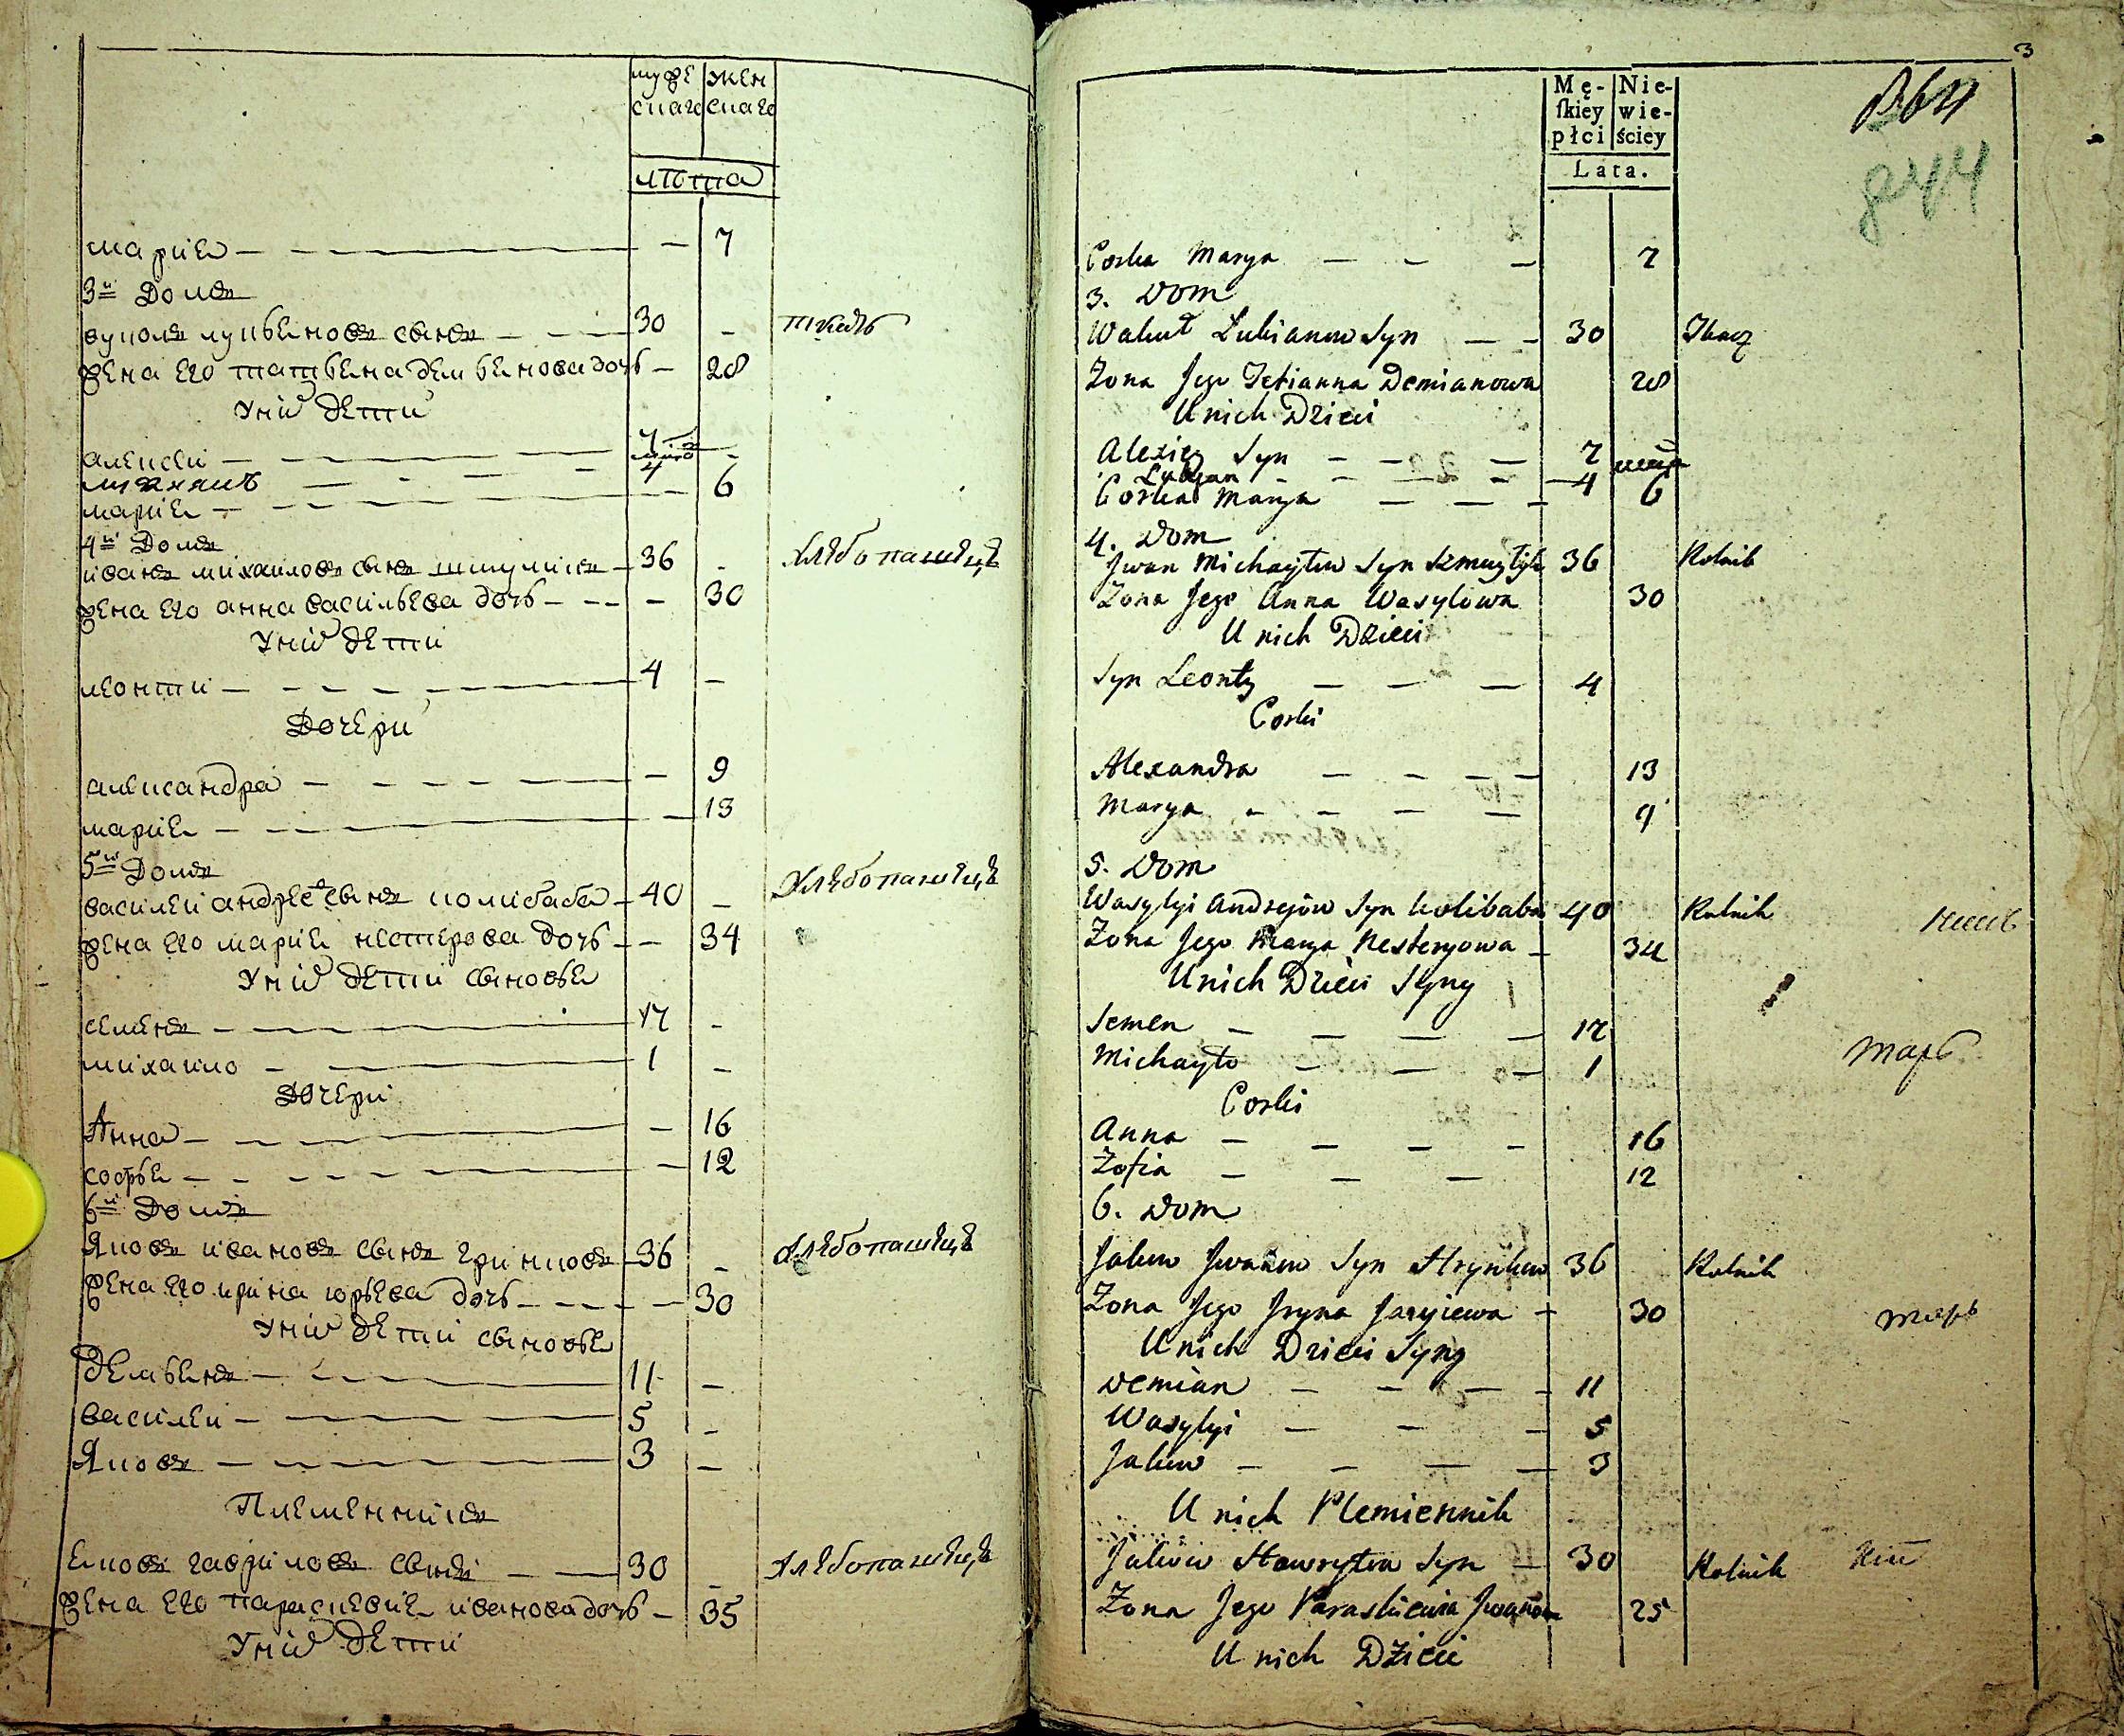 муже жен
скаго скаго
лѣта
мариѧ 7
3й Домъ
вуколъ лукьѧновъ сынъ 30 ткачь
жена его татьѧна демьѧнова дочь 28
У них дети
алексей 7
4
мариѧ 6
4й Домъ
иванъ михаиловъ сынъ 36 хлѣбопашецъ
жена его анна васильева дочь 30
У них дети
леонти 4
Дочери
александра 9
мариѧ 13
5й Домъ
василей андреевъ сынъ колибаба 40 хлѣбопашецъ
жена его мариѧ нестерова дочь 34
У них дети сыновьѧ
семенъ 17
михаило 1
Дочери
Анна 16
софьѧ 12
6й Домъ
Яковъ ивановъ сынъ гринковъ 36 хлѣбопашецъ
жена его ирина юрьева дочь 30
У них дети сыновьѧ
Демьѧнъ 11
василей 5
Яковъ 3
Племенникъ
ѧковъ гавриловъ сынъ 30 хлѣбопашецъ
жена его параскевиѧ иванова дочь 35
У них дети
3
Mę- Nie-
ſkiey wie-
płci ściey
Lata.
844
Corka Marya 7
3. Dom
Wakuł Lukianow Syn 30 Tkacz
Zona Jego Tetianna Demianowa 28
U nich Dzieci
Alexiey Syn 7
Lukjan 4
Corka Marya 6
4. Dom
Jwan Michayłow Syn 36 Rolnik
Zona Jego Anna Wasylowa 30
U nich Dzieci
Syn Leonty 4
Corki
Alexandra 13
Marya 9
5. Dom
Wasylyi Andrejow Syn Kolibaba 40 Rolnik
Zona Jego Marya Nesterowa 34
U nich Dzieci Syny
Semen 17
Michayło 1
Corki
Anna 16
Zofia 12
6. Dom
Jakow Jwanow Syn Hrynkow 36 Rolnik
Zona Jego Jryna Juryjewa 30
U nich Dzieci Syny
Demian 11
Wasylyi 5
Jakow 3
U nich Plemiennik
Jakow Hawryłow Syn 30 Rolnik
Zona Jego Paraskiewia Jwanowa 25
U nich Dzieci